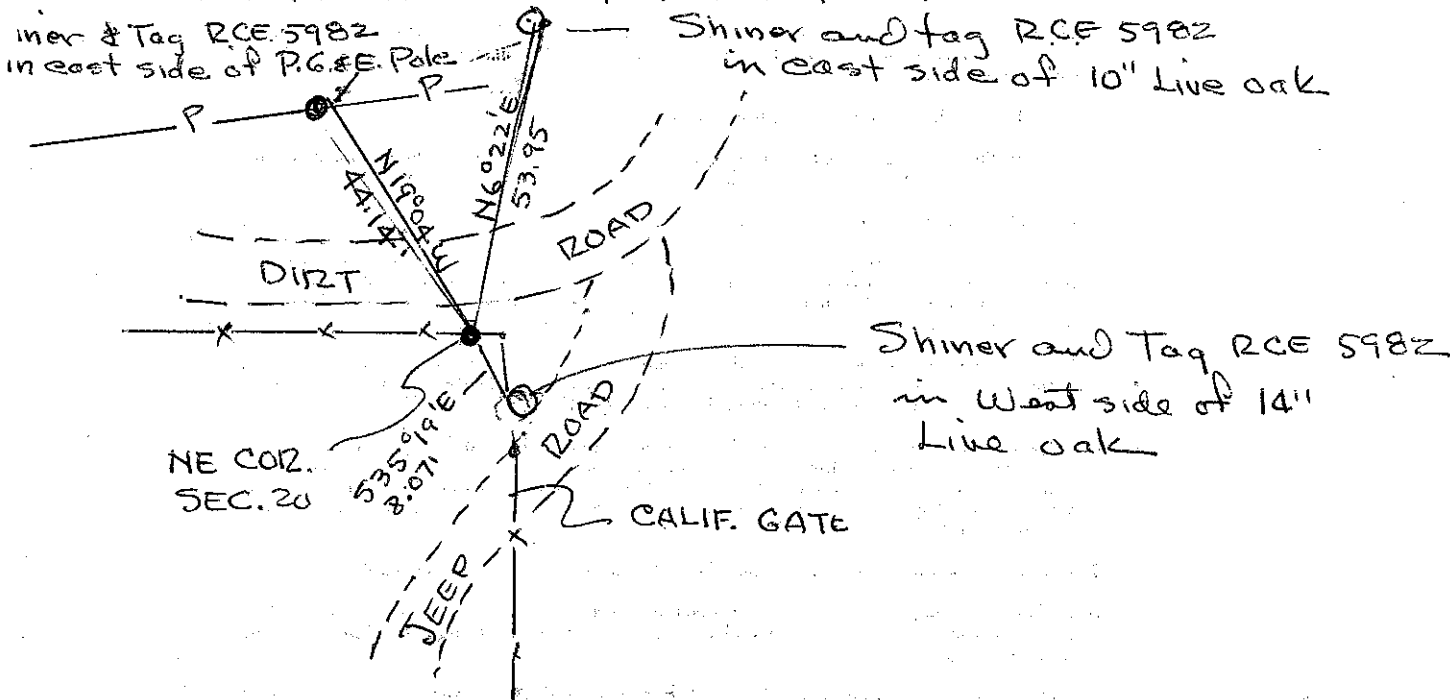 iner & Tag RCE 5982
in east side of P.G.&E. Pole
Shiner and tag RCE 5982
in east side of 10" Live oak
P
P
N19°04'W
44.14'
N6°22'E
53.95
DIRT ROAD
Shiner and Tag RCE 5982
in West side of 14"
Live oak
NE COR.
SEC. 20
S35°19'E
8.071
JEEP ROAD
CALIF. GATE